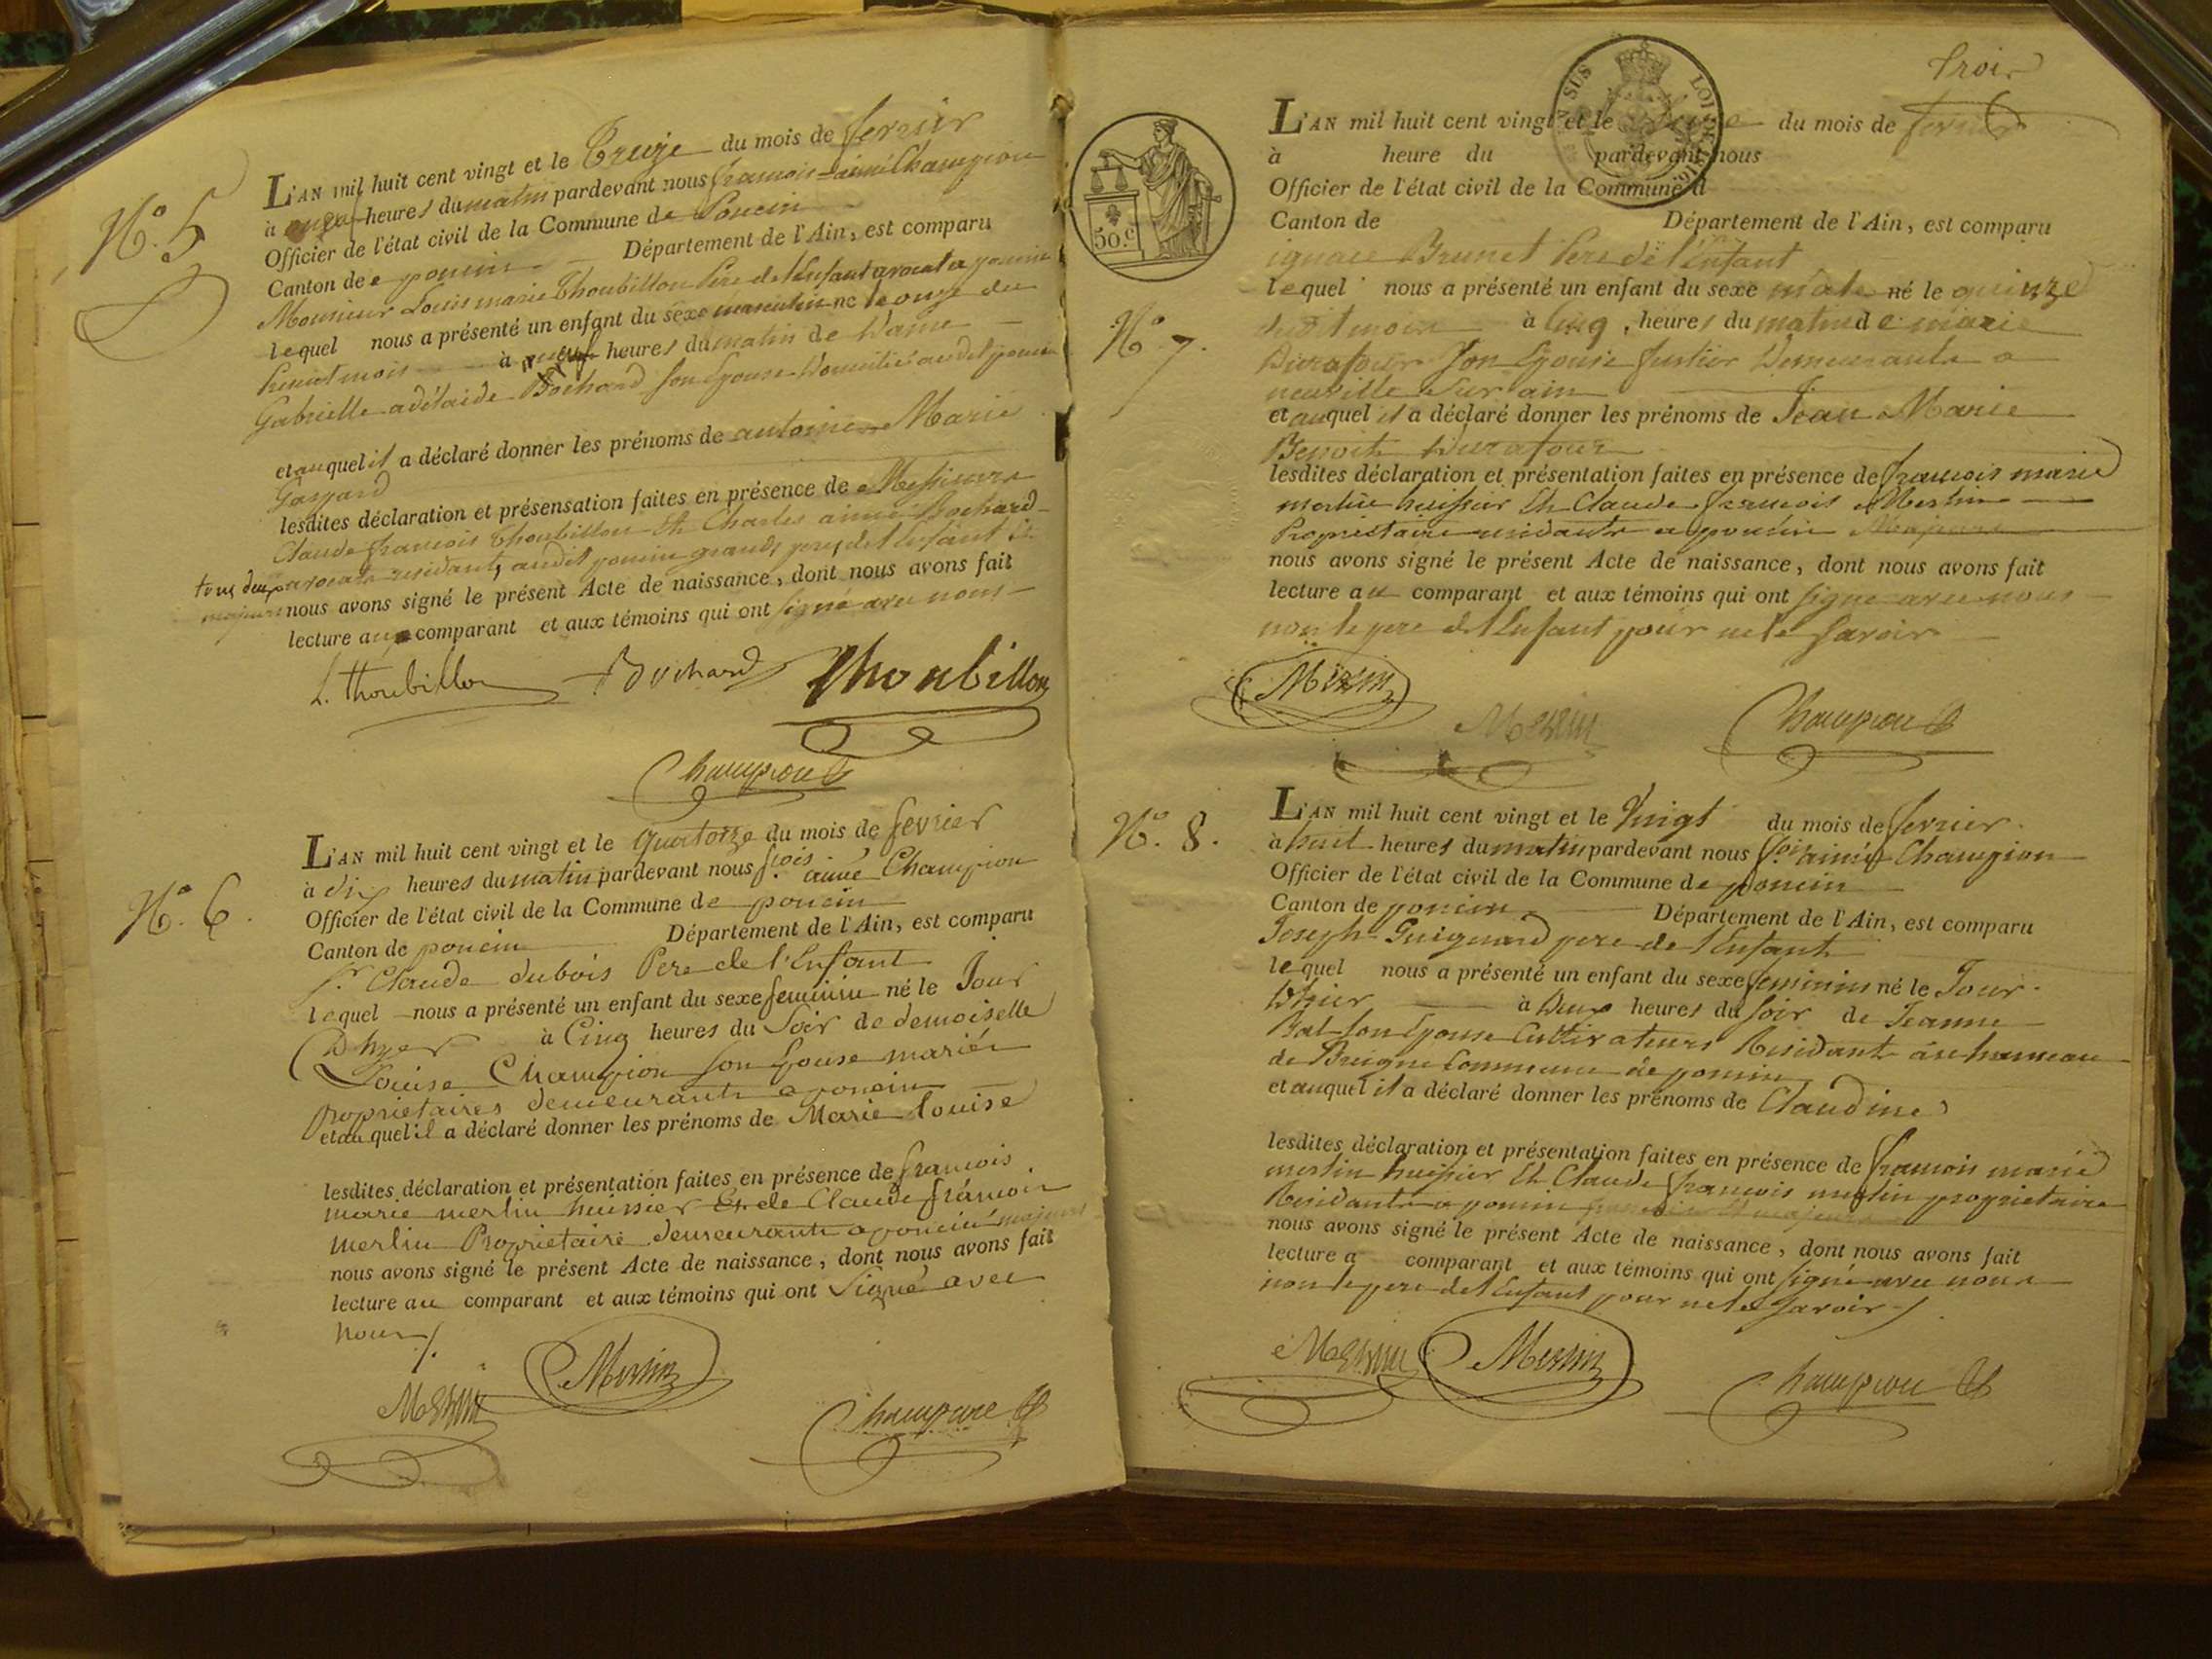 N.º 5
L'AN mil huit cent vingt et le Treize du mois de fevrier
à onze heures du matin pardevant nous francois aimé Champion
Officier de l'état civil de la Commune de Poncin
Canton de poncin Département de l'Ain, est comparu
Monsieur Louis marie Thoubillon Pere de l'Enfant avocat a poncin
lequel nous a présenté un enfant du sexe masculin né le onze du
present mois à neuf heures du matin de Dame
Gabrielle adélaide Bochard son Epouse Domicilié audit poncin
et auquel il a déclaré donner les prénoms de antoine Marie
Gaspard
lesdites déclaration et présensation faites en présence de Messieurs
Claude francois Thoubillon Et Charles aimé Bochard
tous deux avocats residants audit poncin grands peres de l'Enfant Et
majeurs nous avons signé le présent Acte de naissance, dont nous avons fait
lecture au comparant et aux témoins qui ont signé avec nous
L. Thoubillon Bochard Thoubillon
Champion
N.º 6.
L'AN mil huit cent vingt et le quatorze du mois de fevrier
à dix heures du matin pardevant nous f.ois aimé Champion
Officier de l'état civil de la Commune de poncin
Canton de poncin Département de l'Ain, est comparu
S.r Claude dubois Pere de l'Enfant
lequel nous a présenté un enfant du sexe feminin né le Jour
D'hyer à Cinq heures du Soir de demoiselle
Louise Champion son Epouse mariés
Proprietaires demeurants a poncin
et au quel il a déclaré donner les prénoms de Marie Louise
lesdites déclaration et présentation faites en présence de francois
marie merlin huissier Et de Claude francois
merlin Proprietaire demeurants a poncin majeurs
nous avons signé le présent Acte de naissance, dont nous avons fait
lecture au comparant et aux témoins qui ont Signé avec
nous /.
Merlin Merlin
Champion
trois
SUS LOI
50.c
N.º 7.
L'AN mil huit cent vingt et le du mois de fevrier
à heure du pardevant nous
Officier de l'état civil de la Commune d
Canton de Département de l'Ain, est comparu
ignace Brunet Pere de l'Enfant
lequel nous a présenté un enfant du sexe male né le quinze
dudit mois à Cinq heures du matin de marie
Durafour Son Epouse Demeurants a
neuville Sur ain
et auquel il a déclaré donner les prénoms de Jean Marie
Benoit Durafour
lesdites déclaration et présentation faites en présence de francois marie
merlin huissier Et Claude francois Merlin
Proprietaire residants a poncin Majeurs
nous avons signé le présent Acte de naissance, dont nous avons fait
lecture au comparant et aux témoins qui ont signé avec nous
non le pere de l'Enfant pour ne le Savoir
Merlin
Merlin Champion
N.º 8.
L'AN mil huit cent vingt et le Vingt du mois de fevrier
à huit heures du matin pardevant nous f.ois aimé Champion
Officier de l'état civil de la Commune de poncin
Canton de poncin Département de l'Ain, est comparu
Joseph Guignard pere de l'Enfant
lequel nous a présenté un enfant du sexe feminin né le Jour
D'hier à Deux heures du soir de Jeanne
son Epouse Cultivateurs Residants au hameau
de Breigne Commune de poncin
et auquel il a déclaré donner les prénoms de Claudine
lesdites déclaration et présentation faites en présence de francois marie
merlin huissier Et Claude francois merlin proprietaire
Residants a poncin majeurs
nous avons signé le présent Acte de naissance, dont nous avons fait
lecture a comparant et aux témoins qui ont signé avec nous
non le pere de l'Enfant pour ne le Savoir /
Merlin Merlin Champion